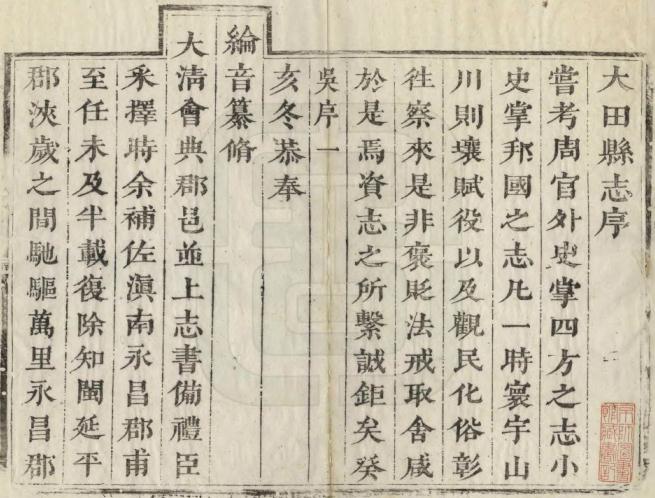 大田縣志序
嘗考周官外史掌四方之志小
史掌邦國之志凡一時寰宇山
川則壤賦役以及觀民化俗彰
徃察來是非褒貶法戒取舍咸
於是焉資志之所繫誠鉅矣癸
吳序一
亥冬恭奉
綸音纂脩
大清會典郡邑並上志書備禮臣
釆擇時余補佐滇南永昌郡甫
至任未及半載復除知閩延平
郡浹歲之間馳驅萬里永昌郡